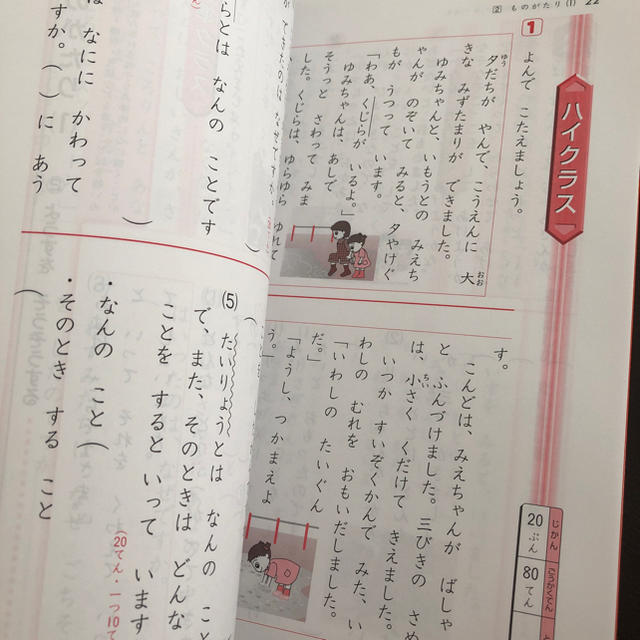 22
⑵ ものがたり⑴
ハイクラス
1 よんで こたえましょう。
夕だちが やんで、こうえんに 大
ゆう
おお
きな みずたまりが できました。
ゆみちゃんと、いもうとの みえち
ゃんが のぞいて みると、夕やけぐ
もが うつって います。
「わあ、くじらが いるよ。」
ゆみちゃんは、あしで
そうっと さわって みま
した。くじらは、ゆらゆら ゆれて
す。
こんどは、みえちゃんが ばしゃ
と ふんづけました。三びきの さめ
は、小さく くだけて きえました。
ちい
いつか すいぞくかんで みた、い
わしの むれを おもいだしました。
「いわしの たいぐん
だ。」
「ようし、つかまえよ
う。」
じかん
20ぷん
ごうかくてん
80てん
と
らとは なんの ことです
は なにに かわって
すか。( )に あう
⑸ たいりょうとは なんの こと
で、また、そのときは どんな
ことを すると いって います
20てん・一つ10て
・なんの こと(
・そのとき する こと
(